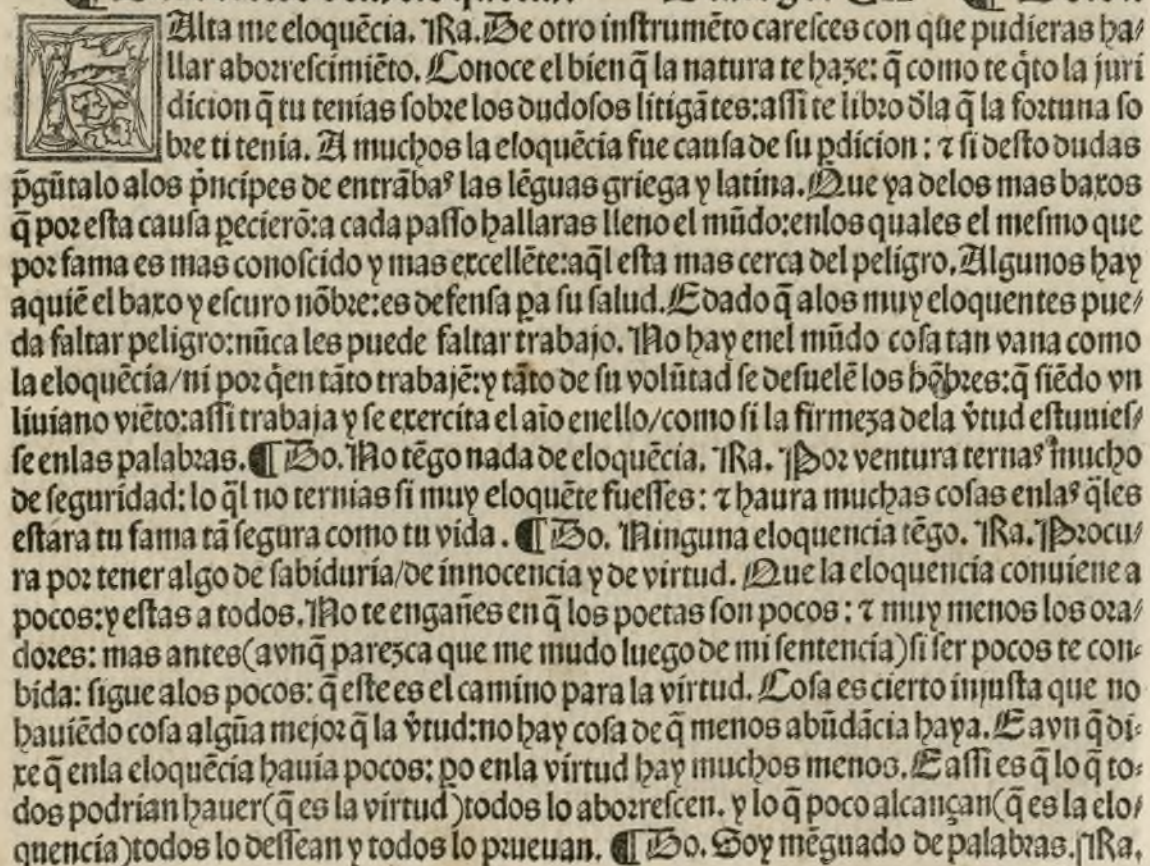 FAlta me eloquēcia. Ra. De otro instrumēto caresces con que pudieras ha/
llar aborrescimiēto. Conoce el bien q̄ la natura te haze: q̄ como te q̇to la juri
dicion q̄ tu tenias sobre los dudosos litigātes:assi te libro d̄la q̄ la fortuna so
bre ti tenia. A muchos la eloquēcia fue causa de su ꝑdicion: ⁊ si desto dudas
p̄gūtalo alos p̄ncipes de entrābaꝰ las lēguas griega y latina. Que ya delos mas baxos
q̄ por esta causa ꝑecierō:a cada passo hallaras lleno el mūdo:enlos quales el mesmo que
por fama es mas conoscido y mas excellēte:aq̄l esta mas cerca del peligro. Algunos hay
aquiē el baxo y escuro nōbre:es defensa ꝑa su salud. E dado q̄ alos muy eloquentes pue/
da faltar peligro:nūca les puede faltar trabajo. No hay enel mūdo cosa tan vana como
la eloquēcia/ni por q̇en tāto trabajē:y tāto de su volūtad se desuelē los hōbres:q̄ siēdo vn
liuiano viēto:assi trabaja y se exercita el aīo enello/como si la firmeza dela v̄tud estuuies/
se enlas palabras. ¶ Do. No tēgo nada de eloquēcia. Ra. Por ventura ternaꝰ mucho
de seguridad: lo q̄l no ternias si muy eloquēte fuesses: ⁊ haura muchas cosas enlaꝰ q̄les
estara tu fama tā segura como tu vida. ¶ Do. Ninguna eloquencia tēgo. Ra. Procu/
ra por tener algo de sabiduria/de innocencia y de virtud. Que la eloquencia conuiene a
pocos:y estas a todos. No te engañes en q̄ los poetas son pocos: ⁊ muy menos los ora/
dores: mas antes(avnq̄ parezca que me mudo luego de mi sentencia)si ser pocos te con-
bida: sigue alos pocos: q̄ este es el camino para la virtud. Cosa es cierto injusta que no
hauiēdo cosa algūa mejor q̄ la v̄tud:no hay cosa de q̄ menos abūdācia haya. E avn q̄ di-
xe q̄ enla eloquēcia hauia pocos: ꝑo enla virtud hay muchos menos. E assi es q̄ lo q̄ to-
dos podrian hauer(q̄ es la virtud)todos lo aborrescen. y lo q̄ poco alcançan(q̄ es la elo/
quencia)todos lo dessean y todos lo prueuan. ¶ Do. Soy mēguado de palabras. Ra.